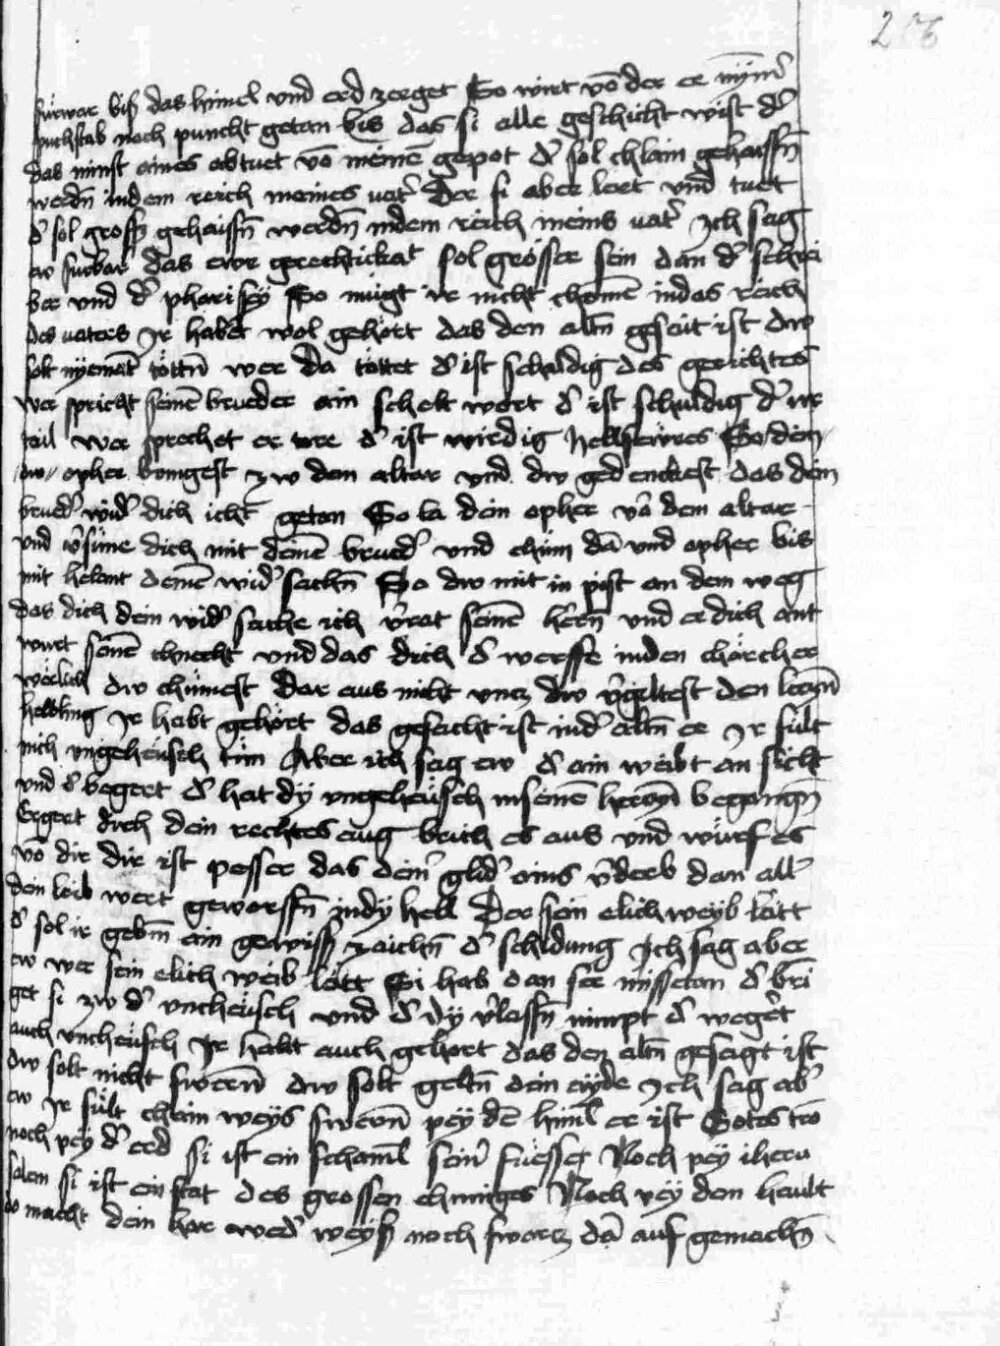 206
fürwar biß das himel vnd erd zerget So wirt võ der ee nÿm̄
puchstab noch puncht getan bis das si alle geschicht wist d̾
das minst aines abtuet võ meinē gepot d̾ sol chlain gehaissn̄
werdn̄ indem reich meines uat̾ Der si aber leret vnd tuet
d̾ sol gross gehaissn̄ werdn̄ indem reich meins uat̾ Ich sag
ew furbar das ewr gerechtickat sol grösser sein dan d̾ schrei
ber vnd d̾ pharisey So mügt ir nicht chomē indas reich
des uaters Ir habet wol gehort das den altn̄ gesait ist dw
solt nyemāt töttn̄ wer da tottet d̾ ist schuldig des gerichtes
wer spricht seinē brueder ain schelt wort d̾ ist schuldig d̾ ur
tail wer sprechet er wer d̾ ist wirdig hellfewres So dein
dw opher bringest zw dem altar vnd dw gedenckest das dein
brued̾ wid̾ dich icht getan So la dein opher vō dem altar
vnd v̄süne dich mit deinē brued̾ vnd chüm dā vnd opher bis
mit helant deinē wid̾ sachn̄ So dw mit in pist an dem weg
das dich dein wid̾ sache icht v̄rat seinē herrn̄ vnd er dich ant
wurt seinē chnecht vnd das dich d̾ werffe inden charcher
wërlich dw chümest dar aus nicht vncz dw v̄geltest den leczn̄
helbling Ir habt gehört das gesacht ist ind̾ altn̄ ee Ir sült
nich vngeheüsch tün Aber ich sag ew d̾ ain weibt an sicht
vnd d̾ begert d̾ hat dÿ vngeheüsch inseinē herczn̄ begangn̄
Ergert dich dein rechtes aug brich es aus vnd würf es
võ dir dir ist pesser das dein̾ glid̾ ains v̄derb dan all̾
dein leib wert geworffn̄ indÿ hell Der sein elich weÿb lätt
d̾ sol ir gebm̄ ain gewiss zaichn̄ d̾ schidung Ich sag aber
ew wer sein elich weib lätt Si hab dan see missetan d̾ brī
get si zw d̾ vncheüsch vnd d̾ dÿ v̄lassn̄ nimpt d̾ weget
auch vncheüsch Ir habt auch gehort das den altn̄ gesagt ist
dw solt nicht swern̄ dw solt geltn̄ dein eyde Ich sag ab̾
ew Ir sült chain weys swern̄ pey dē himl er ist Gotes tro
noch pey d̾ erd si ist ein schaml̄ sein̾ füesser Noch pëy iheru
salem si ist ein stat des grossen chuniges Noch pey den haubt
do macht dein har awed̾ weyß noch swarcz dā auf gemachn̄